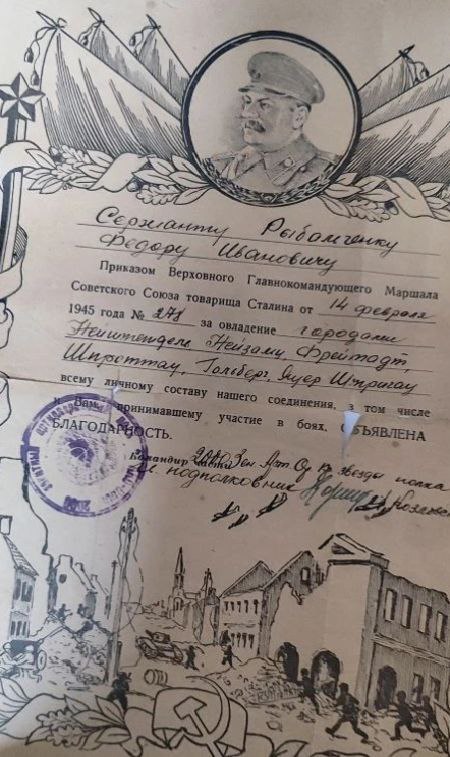 Сержанту Рыбамченку
Федору Ивановичу
Приказом Верховного Главнокомандующего Маршала
Советского Союза товарища Сталина от 14 февраля
1945 года № 278 за овладение городами
Нейштедель Нейзальц Фрейштадт,
Шпроттау, Гольберг, Яуер Штригау
всему личному составу нашего соединения, в том числе
и Вам, принимавшему участие в боях, ОБЪЯВЛЕНА
БЛАГОДАРНОСТЬ.
Командир части Зен Арт. Кр Звезды полка
подполковник